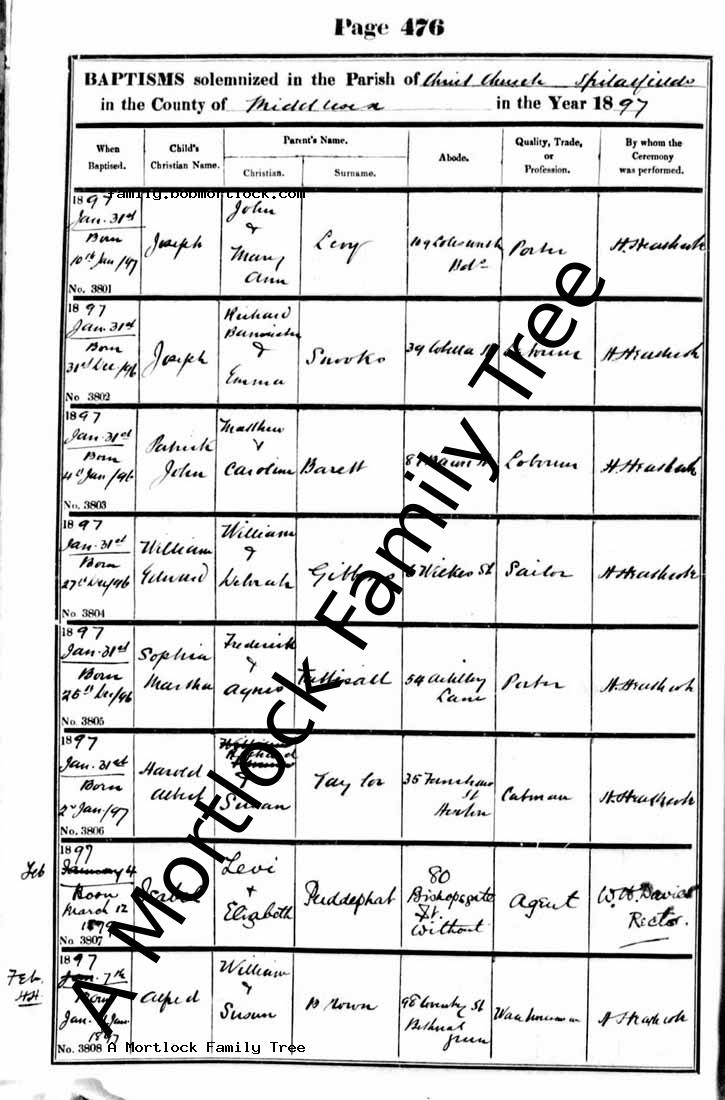 Page 476
BAPTISMS solemnized in the Parish of Christ Church Spitalfields
in the County of Middlesex in the Year 1897
When Baptised.
Child's Christian Name.
Parent's Name.
Christian.
Surname.
Abode.
Quality, Trade, or Profession.
By whom the Ceremony was performed.
family.bobmortlock.com
1897
Jan. 31st
Born
10th Jan/97
No. 3801
Joseph
John
&
Mary
Ann
Levy
Porter
H. Heathcote
1897
Jan. 31st
Born
31st Dec/96
No 3802
Joseph
Richard
Bannister
&
Emma
Snooks
39
St
Labourer
H Heathcote
1897
Jan. 31st
Born
4th Jan/96
No. 3803
Patrick
John
Matthew
&
Caroline
Barett
St
Labourer
H. Heathcote
1897
Jan. 31st
Born
27th Dec/96
No 3804
William
Edward
William
&
Deborah
Gibbons
6 Wilkes St
Sailor
H Heathcote
1897
Jan. 31st
Born
25th Dec/96
No. 3805
Sophia
Martha
Frederick
&
Agnes
54 Artillery
Lane
Porter
H. Heathcote
1897
Jan. 31st
Born
2nd Jan/97
No. 3806
Harold
Albert
William
&
Susan
Taylor
35 Fanshaw
St
Hoxton
Cabman
H. Heathcote
Feb
1897
January 4
Born
March 12
No 3807
Levi
+
Elizabeth
Puddephat
80
Bishopsgate
St.
Without
Agent
W. H. Davies
Rector.
Feb.
HH.
1897
Jan. 7th
Born
Jan.
1897
No. 3808
Alfred
William
&
Susan
Brown
98 Coventry St
Bethnal
Green
Warehouseman
H Heathcote
A Mortlock Family Tree
A Mortlock Family Tree